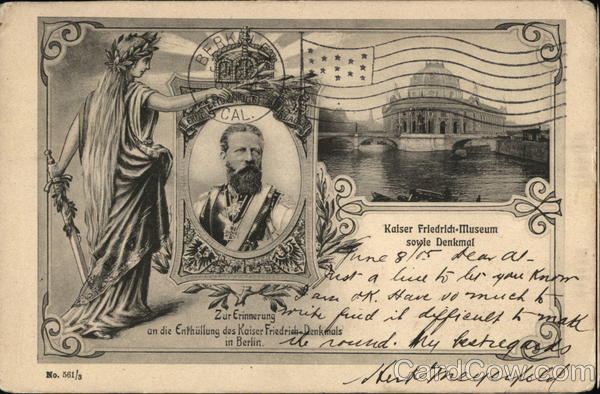 BERKELEY
CAL.
Kaiser Friedrich-Museum
sowie Denkmal
June 8/05 Dear Al-
Just a line to let you know
I am OK. Have so much to
write find it difficult to make
the round. My best regards
Herb
Zur Erinnerung
an die Enthüllung des Kaiser Friedrich-Denkmals
in Berlin.
No. 561/3
CardCow.com